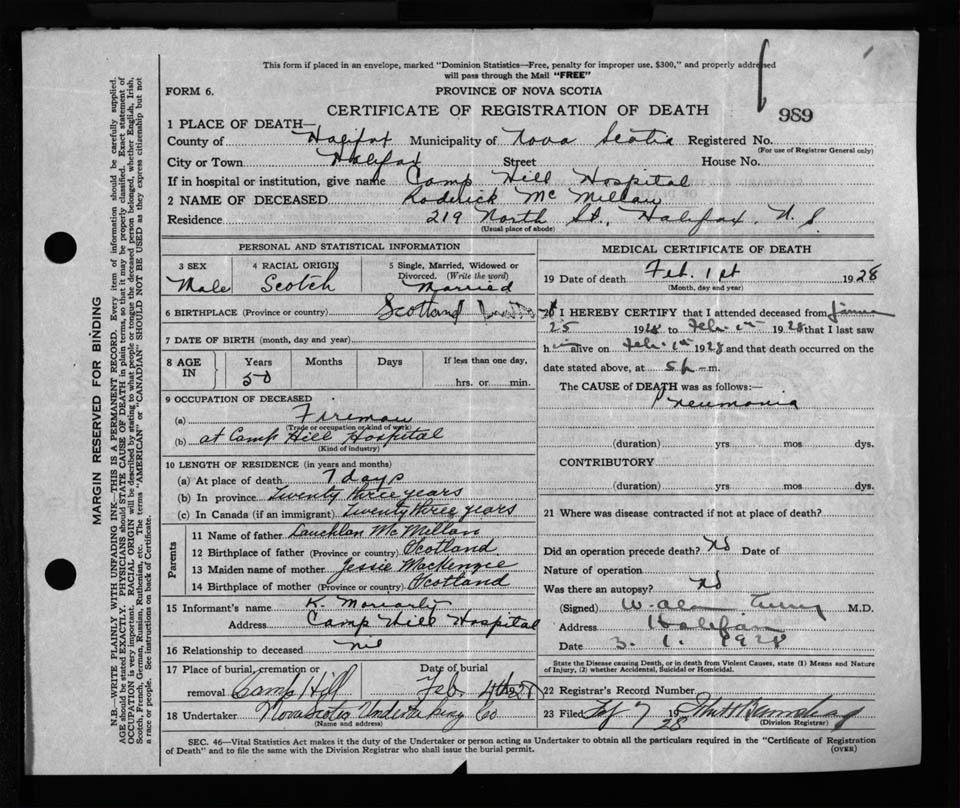 This form if placed in an envelope, marked "Dominion Statistics—Free, penalty for improper use, $300," and properly addressed
will pass through the Mail "FREE"
FORM 6.
PROVINCE OF NOVA SCOTIA
CERTIFICATE OF REGISTRATION OF DEATH
989
1 PLACE OF DEATH—
County of Halifax Municipality of Nova Scotia Registered No.
(For use of Registrar General only)
City or Town Halifax Street House No.
If in hospital or institution, give name Camp Hill Hospital
2 NAME OF DECEASED Roderick McMillan
Residence 219 North St., Halifax, N. S.
(Usual place of abode)
PERSONAL AND STATISTICAL INFORMATION
3 SEX
Male
4 RACIAL ORIGIN
Scotch
5 Single, Married, Widowed or
Divorced. (Write the word)
Married
6 BIRTHPLACE (Province or country) Scotland
7 DATE OF BIRTH (month, day and year)
8 AGE
IN
Years
50
Months
Days
If less than one day,
hrs. or min.
9 OCCUPATION OF DECEASED
(a) Fireman
(Trade or occupation or kind of work)
(b) at Camp Hill Hospital
(Kind of industry)
10 LENGTH OF RESIDENCE (in years and months)
(a) At place of death 7 days
(b) In province Twenty three years
(c) In Canada (if an immigrant) Twenty three years
Parents
11 Name of father Lauchlan McMillan
12 Birthplace of father (Province or country) Scotland
13 Maiden name of mother Jessie MacKenzie
14 Birthplace of mother (Province or country) Scotland
15 Informant's name K. Moriarty
Address Camp Hill Hospital
16 Relationship to deceased nil
17 Place of burial, cremation or
removal Camp Hill
Date of burial
Feb 4th 1928
18 Undertaker Nova Scotia Undertaking Co
(Name and address)
MEDICAL CERTIFICATE OF DEATH
19 Date of death Feb. 1st 1928
(Month, day and year)
I HEREBY CERTIFY that I attended deceased from
25 1928 to Feb. 1st 1928 that I last saw
him alive on Feb. 1st 1928 and that death occurred on the
date stated above, at 5 p.m.
The CAUSE of DEATH was as follows:—
Pneumonia
(duration) yrs mos dys.
CONTRIBUTORY
(duration) yrs. mos. dys.
21 Where was disease contracted if not at place of death?
Did an operation precede death? No Date of
Nature of operation
Was there an autopsy? No
(Signed) W. Alan M.D.
Address Halifax
Date 3. 1. 1928
State the Disease causing Death, or in death from Violent Causes, state (1) Means and Nature
of Injury, (2) whether Accidental, Suicidal or Homicidal.
22 Registrar's Record Number
23 Filed 7 1928
(Division Registrar)
SEC. 46—Vital Statistics Act makes it the duty of the Undertaker or person acting as Undertaker to obtain all the particulars required in the "Certificate of Registration
of Death" and to file the same with the Division Registrar who shall issue the burial permit.
(OVER)
MARGIN RESERVED FOR BINDING
N.B.—WRITE PLAINLY WITH UNFADING INK—THIS IS A PERMANENT RECORD. Every item of information should be carefully supplied.
AGE should be stated EXACTLY. PHYSICIANS should STATE CAUSE OF DEATH in plain terms, so that it may be properly classified. Exact statement of
OCCUPATION is very important. RACIAL ORIGIN will be described by stating to what people or tongue the deceased person belonged, whether English, Irish,
Scotch, French, German, Russian, Ruthenian, etc. The terms "AMERICAN" or "CANADIAN" SHOULD NOT BE USED as they express citizenship but not
a race or people. See instructions on back of Certificate.